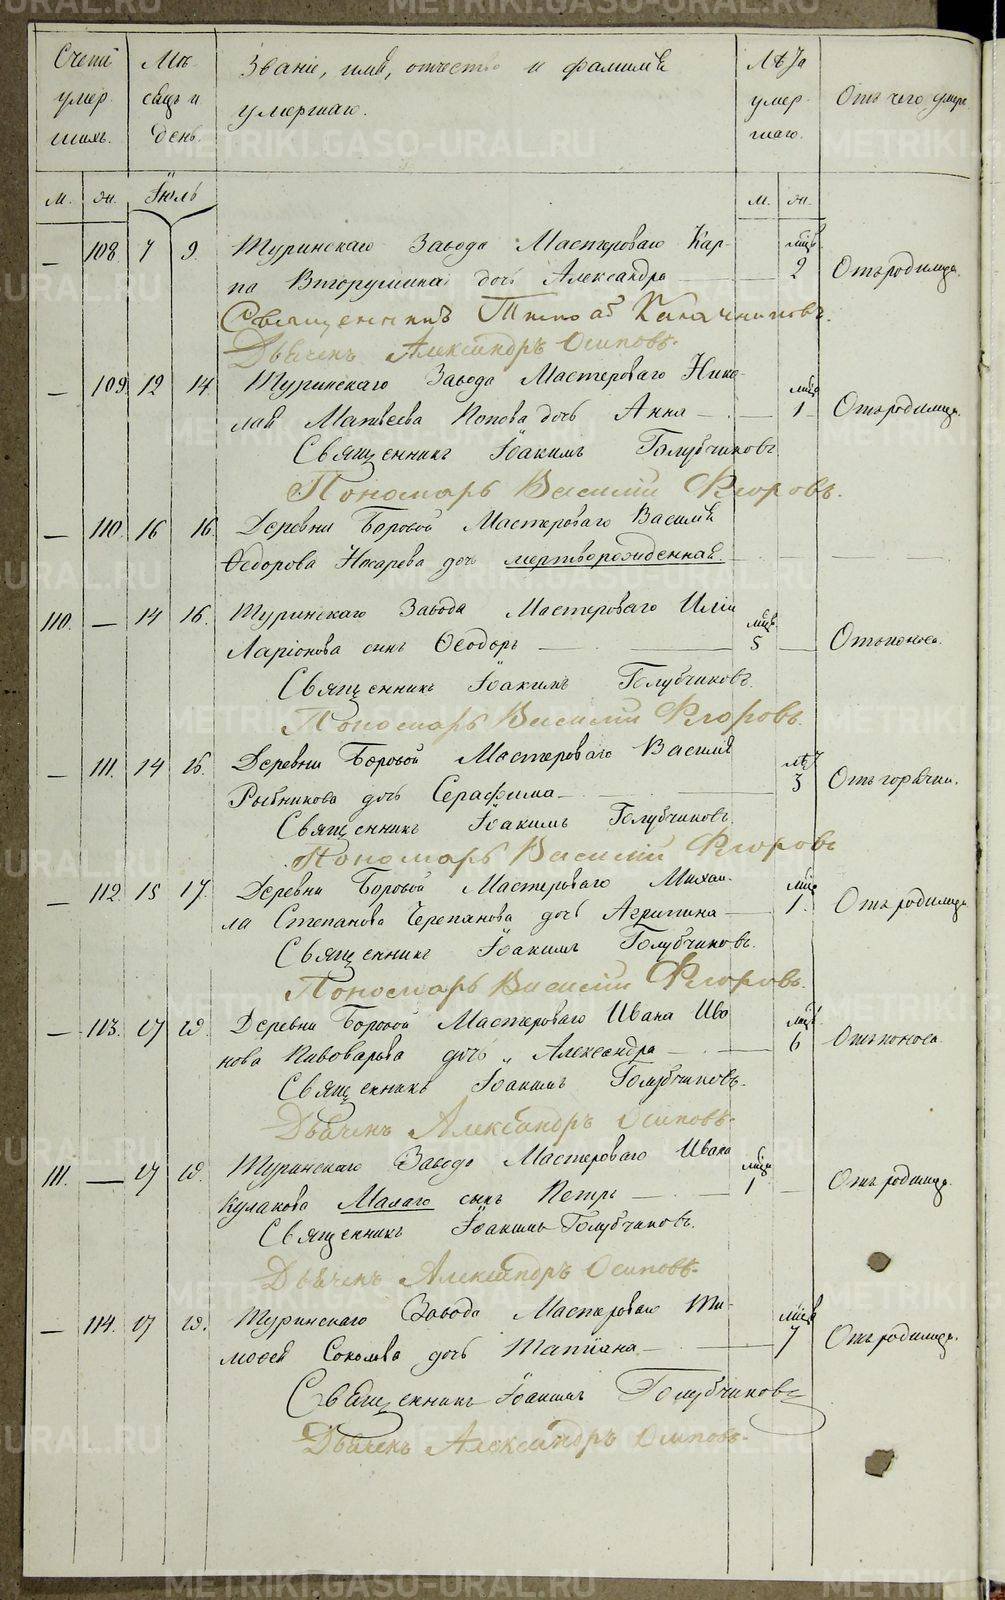 Счетъ умершихъ.
Мѣсяцъ и день.
Званіе, имя, отчество и фамилія умершаго.
Лѣта умершаго.
Отъ чего умеръ
м. жн. Іюль м. жн.
— 108 7 9. Туринскаго Завода Мастероваго Кар- мѣсц.
па Вторушина дочь Александра — 2 Отъ родимца.
Священникъ Калачниковъ.
Дьячекъ Александръ Осиповъ.
— 109. 12 14 Туринскаго Завода Мастероваго Нико- мѣсц.
лая Матвѣева Попова дочь Анна — 1 Отъ родимца.
Священникъ Іоакимъ Голубчиковъ
Пономарь Василій Егоровъ.
— 110. 16 16. Деревни Боровой Мастероваго Василія
Ѳедорова дочь мертворожденная.
110. — 14 16. Туринскаго Завода Мастероваго Иліи мѣсц.
Ларіонова сынъ Ѳеодоръ — 5 — Отъ поноса.
Священникъ Іоакимъ Голубчиковъ.
Пономарь Василій Егоровъ.
— 111. 14 16. Деревни Боровой Мастероваго Василія лѣт.
Рыбникова дочь Серафима — 3 Отъ горячки.
Священникъ Іоакимъ Голубчиковъ.
Пономарь Василій Егоровъ
— 112. 15 17. Деревни Боровой Мастероваго Михаи- мѣсц.
ла Степанова Черепанова дочь Агрипина — 1. Отъ родимца
Священникъ Іоакимъ Голубчиковъ.
Пономарь Василій Егоровъ.
— 113. 17 19. Деревни Боровой Мастероваго Ивана Ива мѣсц.
нова Пивоварова дочь „ Александра — 6 Отъ поноса
Священникъ Іоакимъ Голубчиковъ.
Дьячекъ Александръ Осиповъ.
111. — 17 19. Туринскаго Завода Мастероваго Ивана мѣсц.
Кулакова Малаго сынъ Петръ — 1 — Отъ родимца.
Священникъ Іоакимъ Голубчиковъ.
Дьячекъ Александръ Осиповъ.
— 114. 17 19. Туринскаго Завода Мастероваго Ти- мѣсц.
моѳея Соколова дочь Татіана — 7 Отъ родимца.
Священникъ Іоакимъ Голубчиковъ
Дьячекъ Александръ Осиповъ.
METRIKI.GASO-URAL.RU